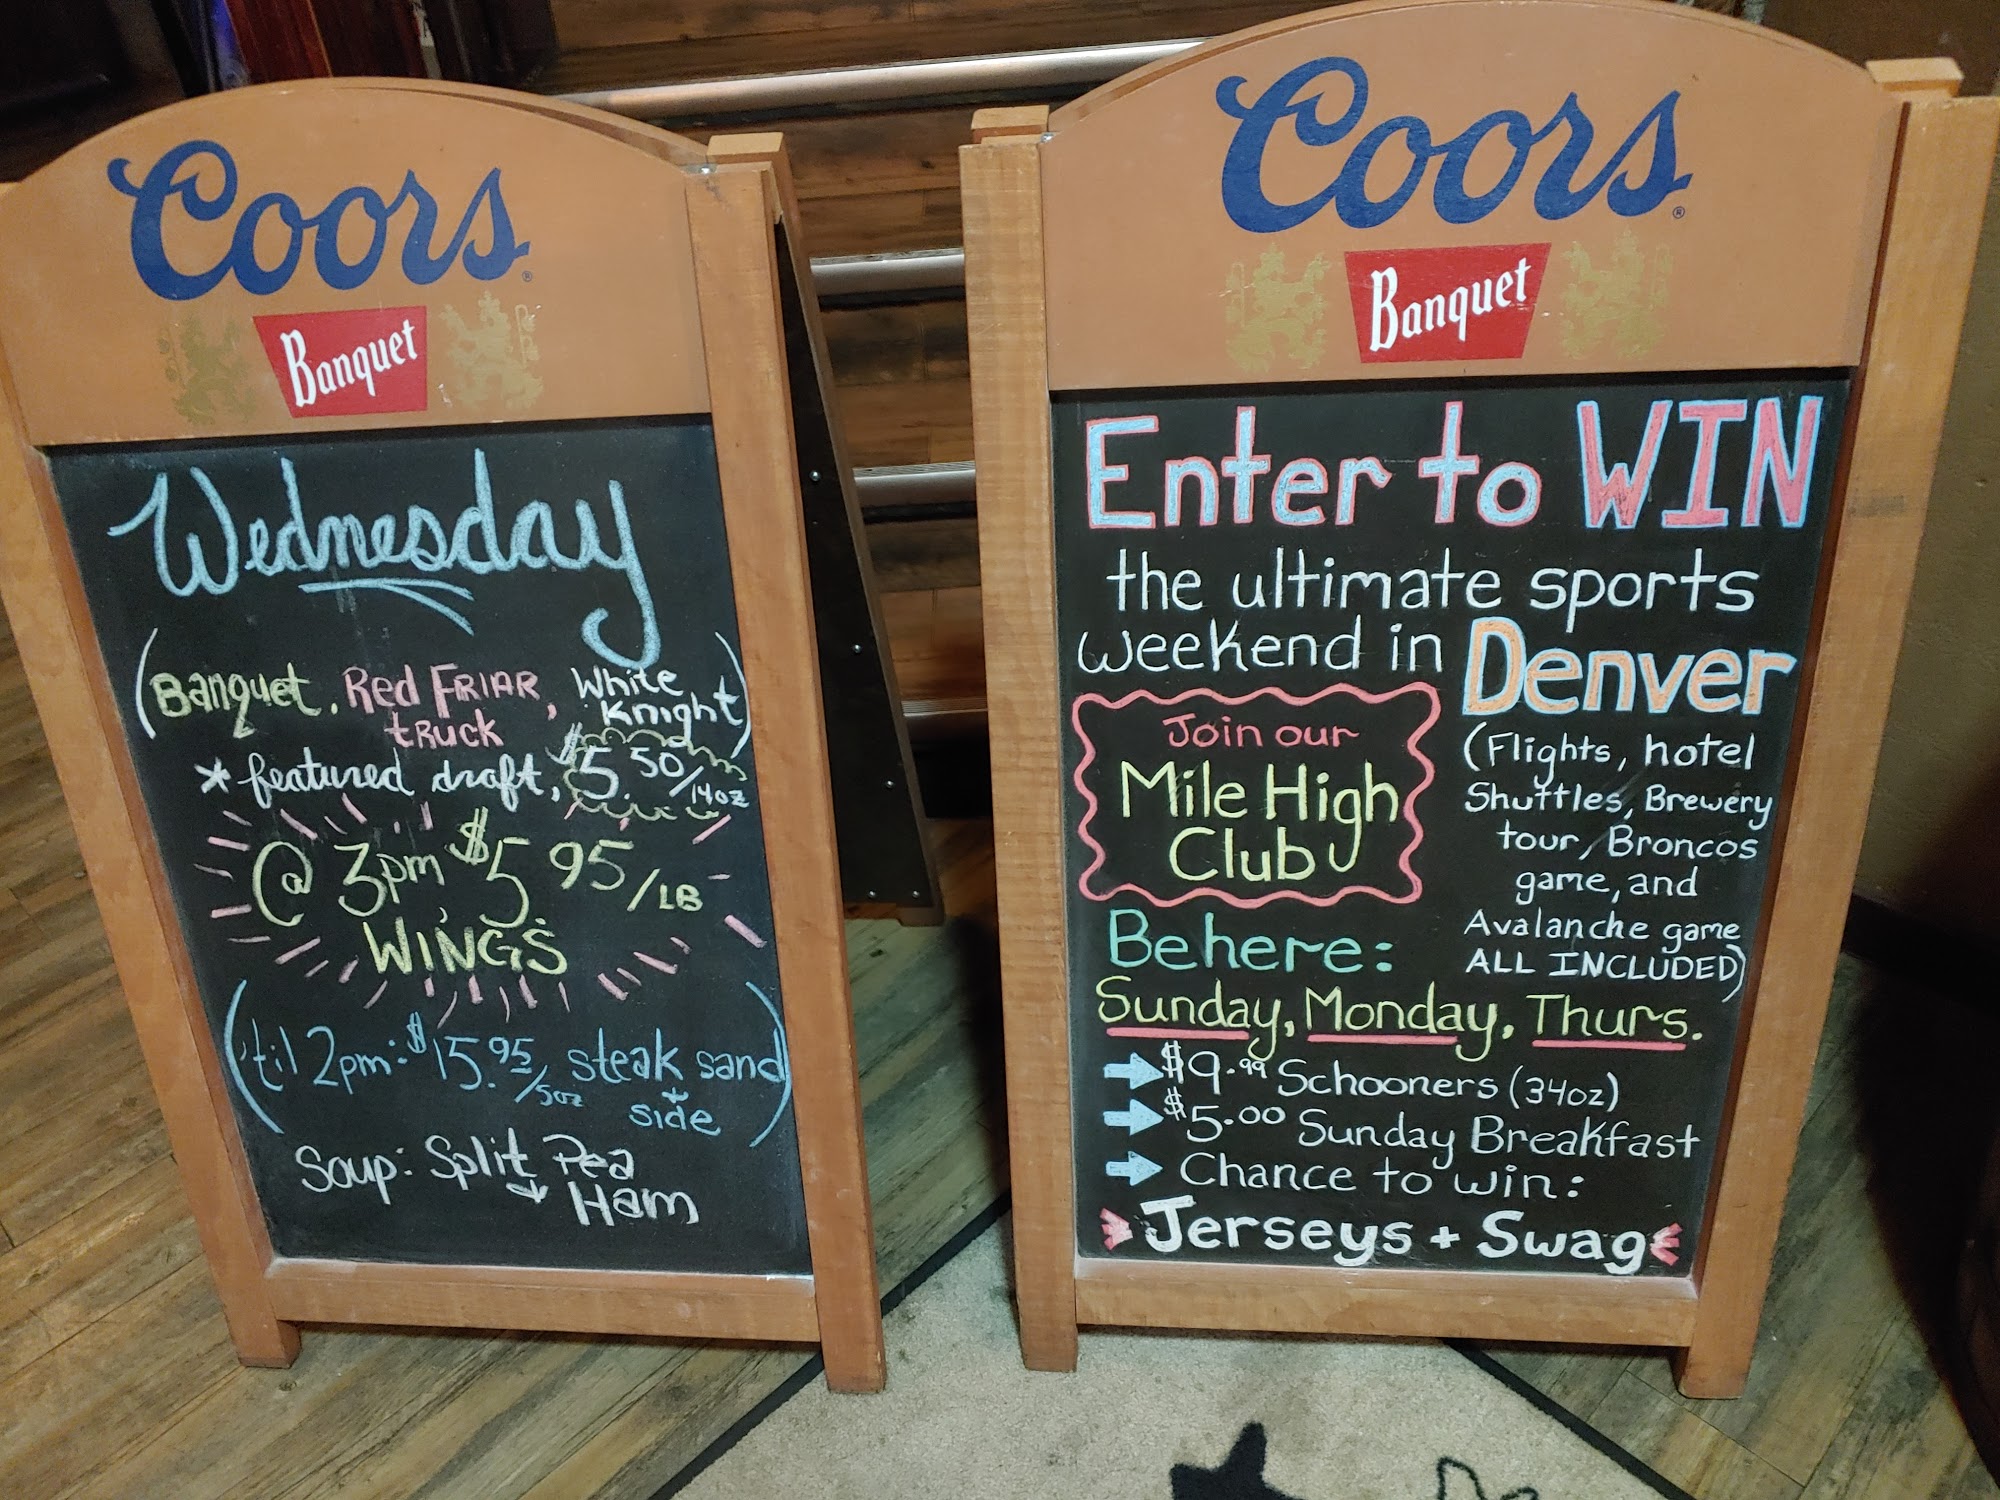 Coors
Banquet
Wednesday
(Banquet, Red FRIAR, White
truck Knight)
* featured draft, $5.50/14oz
@ 3pm, $5.95/LB
WINGS
('til 2pm: $15.95/5oz steak sand
+ side)
Soup: Split Pea
+ Ham
Coors
Banquet
Enter to WIN
the ultimate sports
weekend in Denver
Join our
Mile High
Club
(Flights, hotel
Shuttles, Brewery
tour, Broncos
game, and
Avalanche game
ALL INCLUDED)
Be here:
Sunday, Monday, Thurs.
$9.99 Schooners (34oz)
$5.00 Sunday Breakfast
Chance to win:
Jerseys + Swag